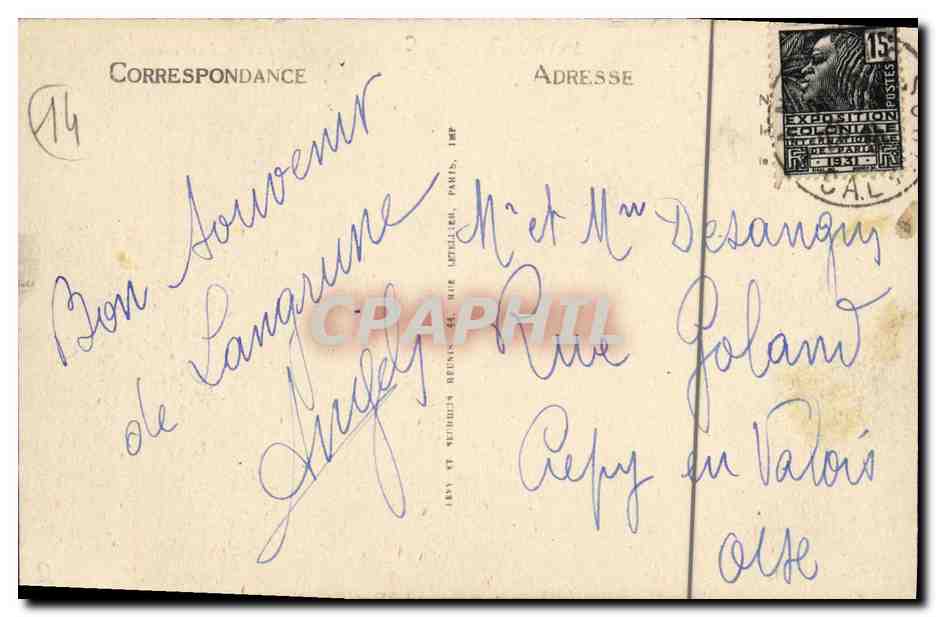 CORRESPONDANCE
ADRESSE
14
Bon Souvenir
de Langrune
LEVY ET NEURDEIN RÉUNIS, 44, RUE LETELLIER, PARIS, IMP
15c
POSTES
EXPOSITION
COLONIALE
INTERNATIONALE
DE PARIS
1931
CAL
Mr et Mme Desanguy
Rue Goland
Crepy en Valois
Oise
CPAPHIL